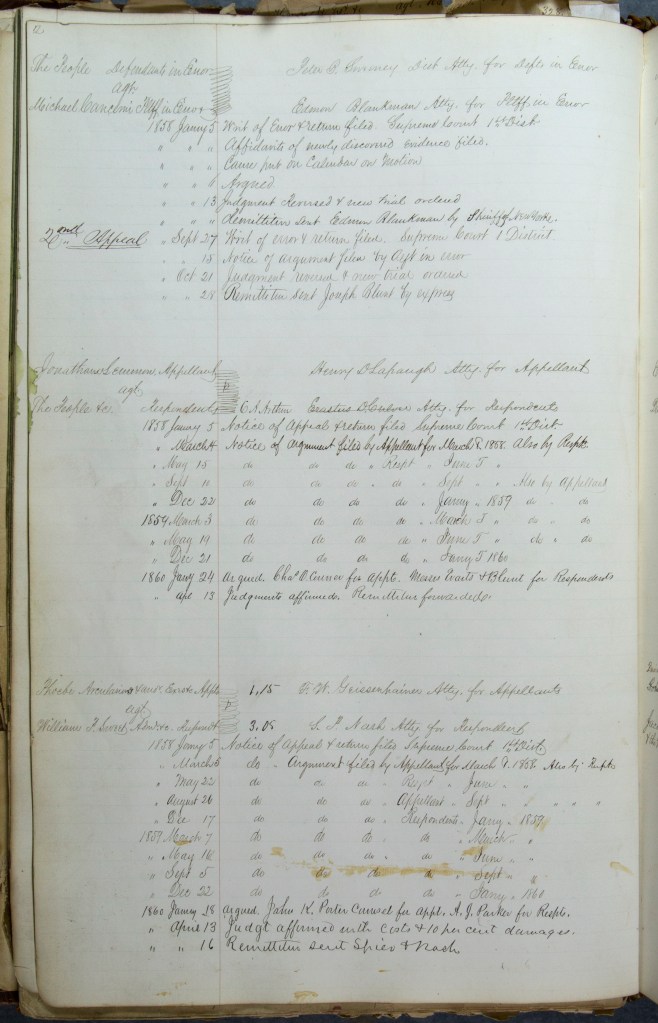 The People Defendants in Error Peter B. Sweeney Dist Atty. for Defts in Error
agt.
Michael Cancemi Plff in Error Edmon Blankman Atty. for Plff in Error
1858 Janny 5 Writ of Error & return filed. Supreme Court 1st Dist
" " " Affidavits of newly discovered evidence filed.
" " " Cause put on Calendar on Motion
" " 6 Argued
" " 13 Judgment Reversed & new trial ordered
" " " Remittitur sent Edmon Blankman by Sheriff of New York.
2nd Appeal " Sept 27 Writ of error & return filed. Supreme Court 1 District
" " 15 Notice of argument filed by Deft in error
" Oct 21 Judgment reversed & new trial ordered
" " 28 Remittitur sent Joseph Blunt by express
Jonathan Lemmon, Appellant Henry D Lapaugh Atty. for Appellant
agt
The People &c. Respondents C. A. Arthur Erastus D Culver Atty. for Respondents
1858 Janny 5 Notice of Appeal & return filed Supreme Court 1st Dist
" March 4 Notice of Argument filed by Appellant for March T. 1858. Also by Respts
" May 15 do do do " Respt " June T "
" Sept 11 do do do " do " Sept " " Also by Appellant
" Dec 22 do do do do " Janny " 1859 do " do
1859 March 3 do do do do " March T " do " do
" May 19 do do do do " June T " do " do
" Dec 21 do do do do " Janny T 1860
1860 Jany 24 Argued. Chas O'Conor for Applt. Messrs Evarts & Blunt for Respondents
" Apl 13 Judgments affirmed. Remittitur forwarded
Phoebe Arcularius & anr. Exrs &c Applts 1,15 F. W. Geissenhainer Atty. for Appellants
agt
William P. Sweet, Adm. &c. Respondt 3.08 S. P. Nash Atty for Respondent
1858 Janny 5 Notice of Appeal & return filed Supreme Court 1st Dist
" March 5 do " Argument filed by Appellant for March T. 1858. Also by Respts
" May 22 do do do " Respt " June " "
" August 26 do do do " Appellant " Sept " " " " "
" Dec 17 do do do " Respondents " Jany " 1859
1859 March 7 do do do " do " March " "
" May 18 do do do " do " June " "
" Sept 5 do do do do " Sept " "
" Dec 22 do do do do " Jany " 1860
1860 Janny 28 Argued John K. Porter Counsel for Applt. A. J. Parker for Respts.
" April 13 Judgt affirmed with costs & 10 per cent damages.
" " 16 Remittitur sent Spier & Nash